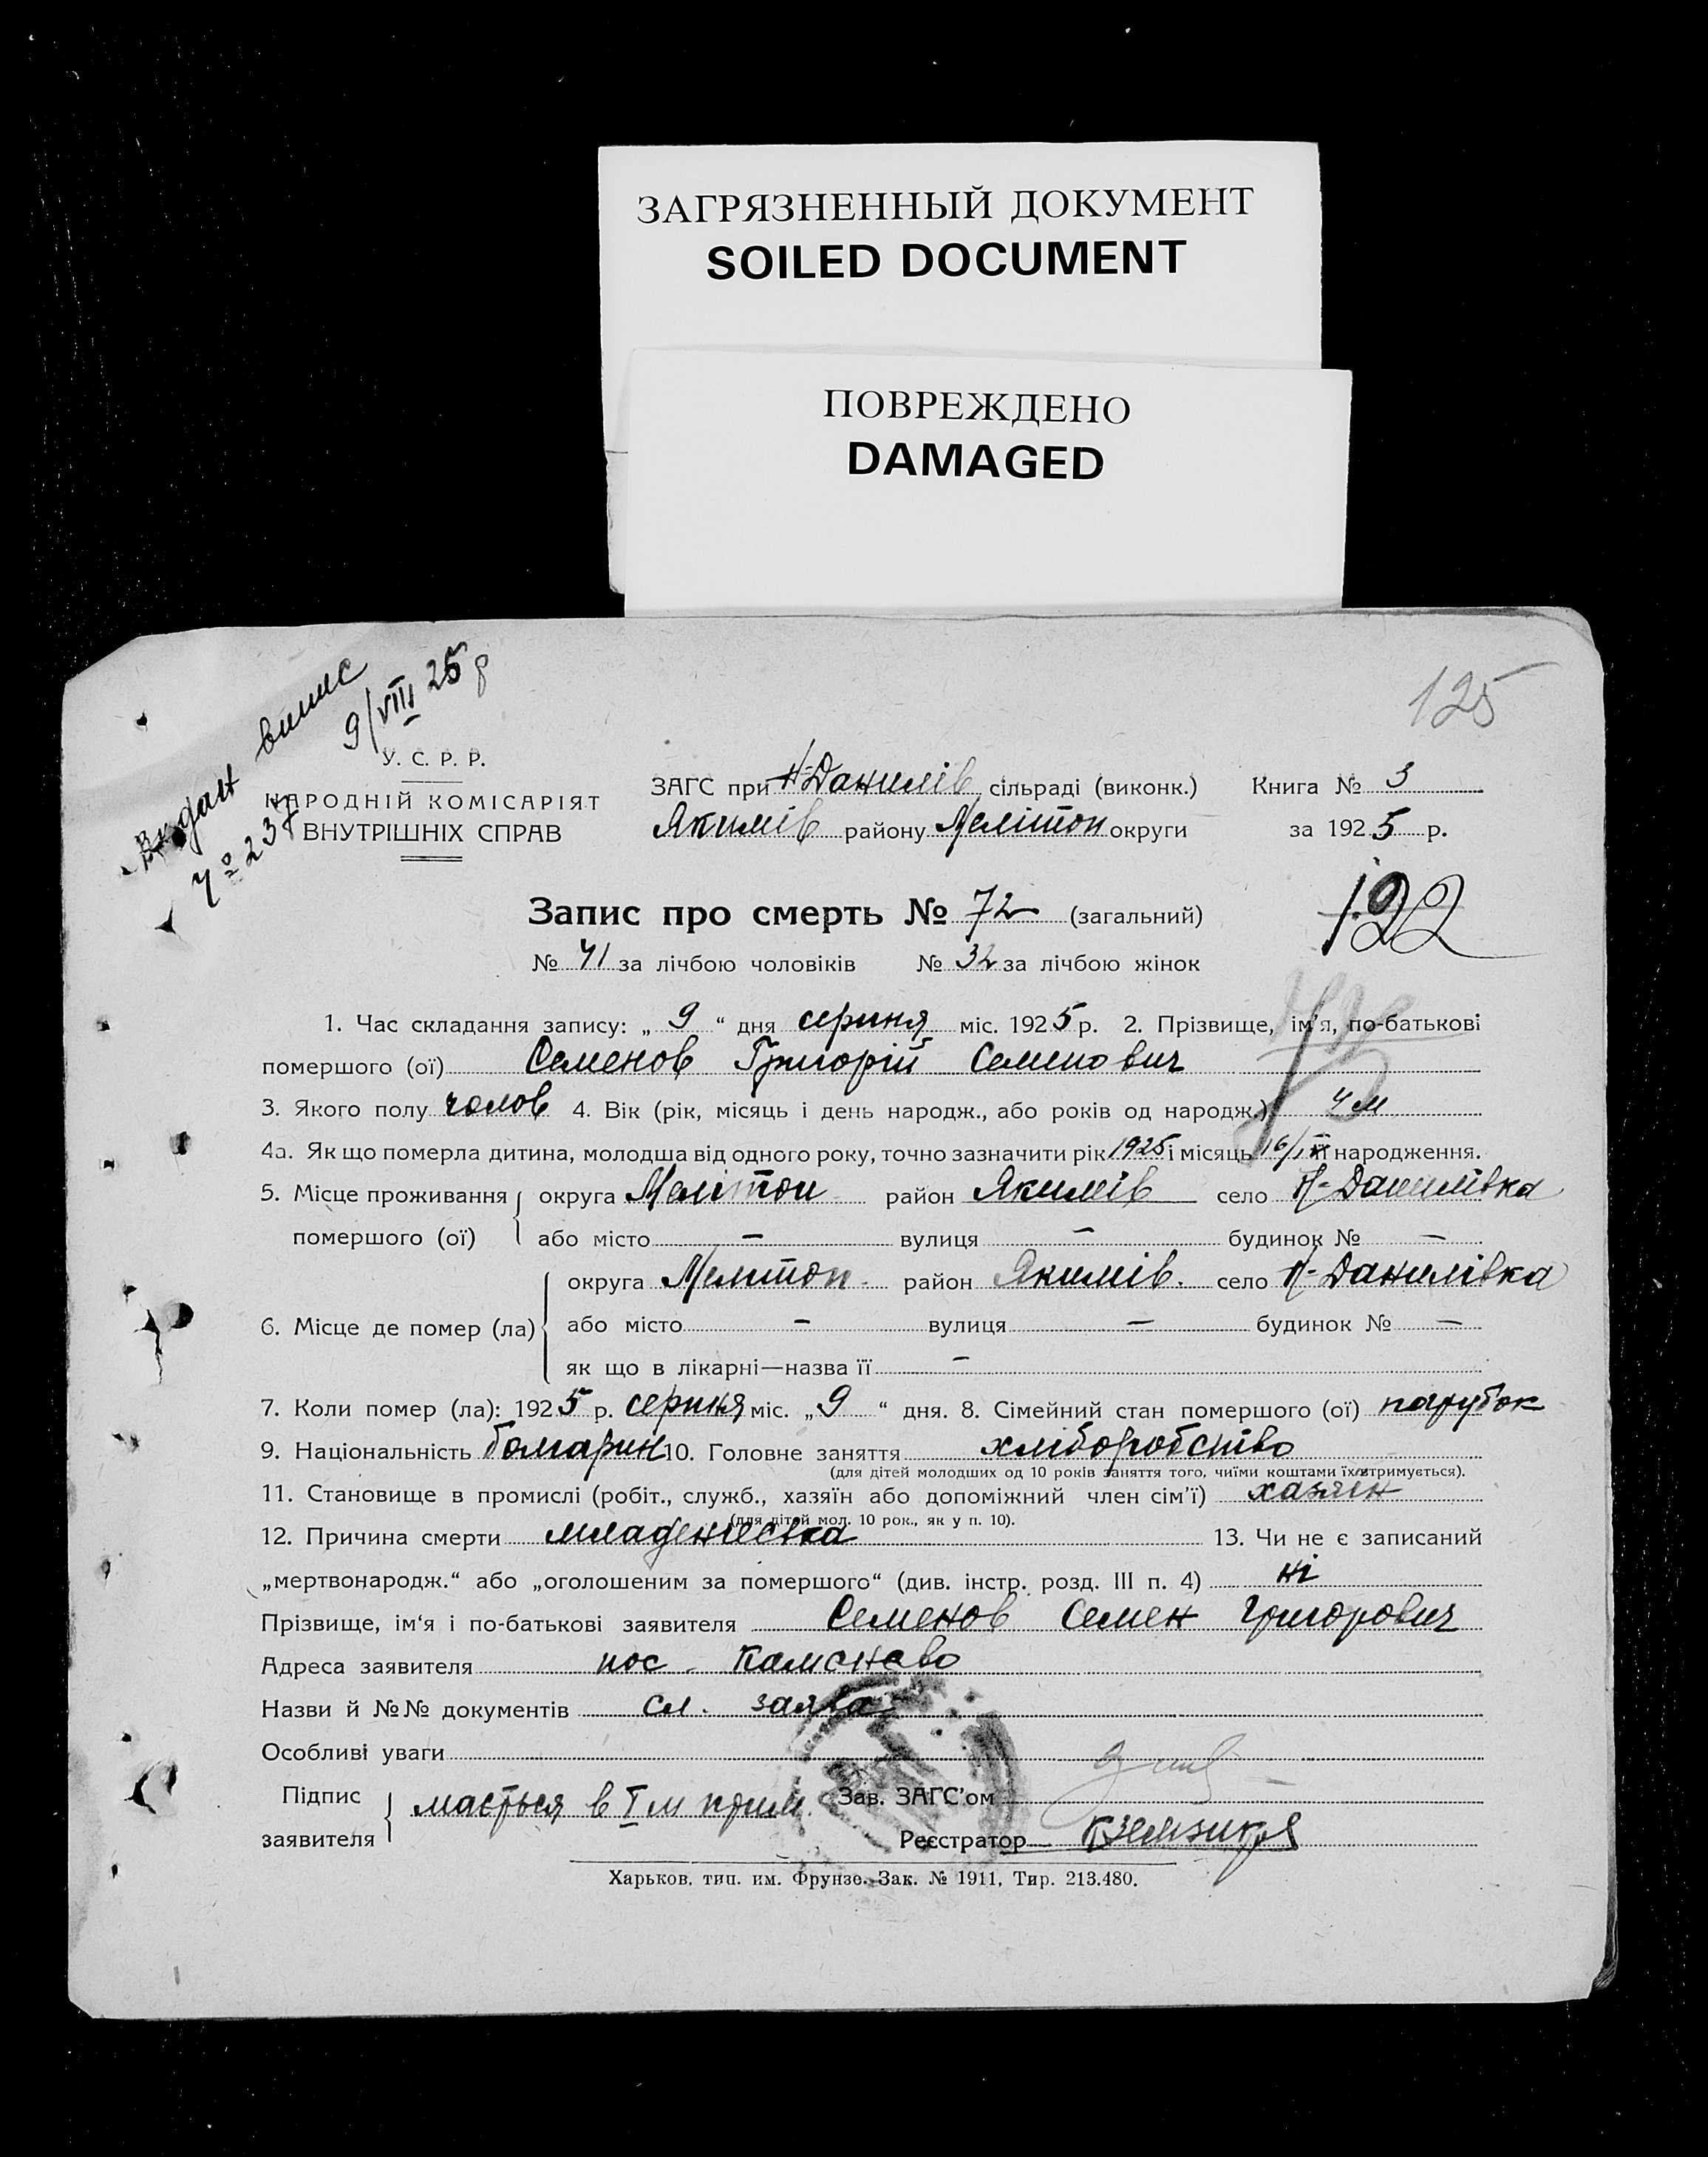 ЗАГРЯЗНЕННЫЙ ДОКУМЕНТ
SOILED DOCUMENT
ПОВРЕЖДЕНО
DAMAGED
125
Видан випис
9/VIII 25 р
У. С. Р. Р.
НАРОДНІЙ КОМІСАРІЯТ
ВНУТРІШНІХ СПРАВ
ЗАГС при Н-Данилів сільраді (виконк.) Книга № 3
Якимів району Меліtoп округи за 1925 р.
Запис про смерть № 72 (загальний)
122
№ 41 за лічбою чоловіків № 32 за лічбою жінок
1. Час складання запису: „ 9 “ дня серпня міс. 1925 р. 2. Прізвище, ім'я, по-батькові
помершого (ої) Семенов Григорій Семенович
3. Якого полу чолов 4. Вік (рік, місяць і день народж., або років од народж.) 4 м
4а. Як що померла дитина, молодша від одного року, точно зазначити рік 1925 і місяць 16/ народження.
5. Місце проживання помершого (ої) округа Мелітоп район Якимів село Н-Данилівка
або місто — вулиця — будинок № —
6. Місце де помер (ла) округа Мелітоп район Якимів. село Н-Данилівка
або місто — вулиця — будинок № —
як що в лікарні—назва її —
7. Коли помер (ла): 1925 р. серпня міс. „ 9 “ дня. 8. Сімейний стан помершого (ої) парубок
9. Національність болгарин 10. Головне заняття хліборобство
(для дітей молодших од 10 років заняття того, чиїми коштами їх утримується).
11. Становище в промислі (робіт., служб., хазяїн або допоміжний член сім'ї) хазяїн
(для дітей мол. 10 рок., як у п. 10).
12. Причина смерти младенческа 13. Чи не є записаний
„мертвонародж.“ або „оголошеним за помершого“ (див. інстр. розд. III п. 4) ні
Прізвище, ім'я і по-батькові заявителя Семенов Семен Григорович
Адреса заявителя пос. Каменево
Назви й №№ документів сл. заява
Особливі уваги
Підпис заявителя мається в І м прим. Зав. ЗАГС'ом
Реєстратор
Харьков. тип. им. Фрунзе. Зак. № 1911, Тир. 213.480.